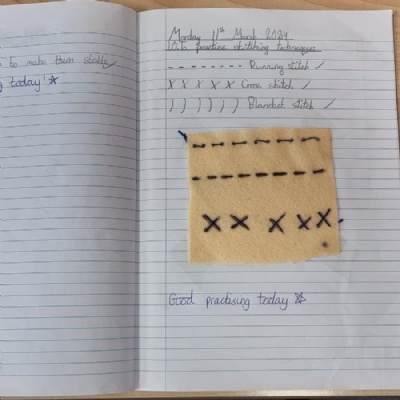 to make them stable
today!
Monday 11th March 2024
LO: practise stitching techniques
Running stitch
X X X X X Cross stitch
Blanket stitch
Good practising today